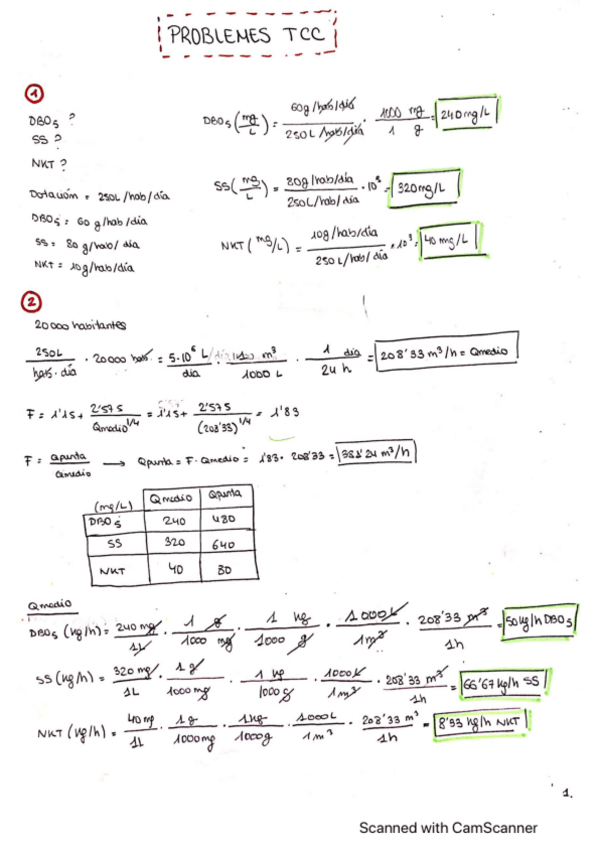 PROBLEMES TCC
1
DBO5 ?
SS ?
NKT ?
Dotación = 250L /hab/día
DBO5 = 60 g/hab/día
SS = 80 g/hab/ día
NKT = 10g/hab/día
DBO5 (mg/L) = 60g/hab/día / 250L/hab/día · 1000 mg / 1 g = 240mg/L
SS (mg/L) = 80g/hab/día / 250L/hab/día · 10³ = 320mg/L
NKT (mg/L) = 10g/hab/día / 250 L/hab/día · 10³ = 40 mg/L
2
20000 habitantes
250L / hab·día · 20000 hab = 5·10⁶ L / día · m³ / 1000 L · 1 día / 24 h = 208'33 m³/h = Qmedio
F = 1'15 + 2'575 / Qmedio^1/4 = 1'15 + 2'575 / (208'33)^1/4 = 1'83
F = Qpunta / Qmedio → Qpunta = F · Qmedio = 1'83 · 208'33 = 381'24 m³/h
(mg/L) Qmedio Qpunta
DBO5 240 480
SS 320 640
NKT 40 80
Qmedio
DBO5 (kg/h) = 240 mg / 1L · 1 g / 1000 mg · 1 kg / 1000 g · 1000L / 1m³ · 208'33 m³ / 1h = 50kg/h DBO5
SS (kg/h) = 320 mg / 1L · 1 g / 1000 mg · 1 kg / 1000 g · 1000L / 1m³ · 208'33 m³ / 1h = 66'67 kg/h SS
NKT (kg/h) = 40 mg / 1L · 1 g / 1000mg · 1kg / 1000g · 1000L / 1m³ · 208'33 m³ / 1h = 8'33 kg/h NKT
1.
Scanned with CamScanner